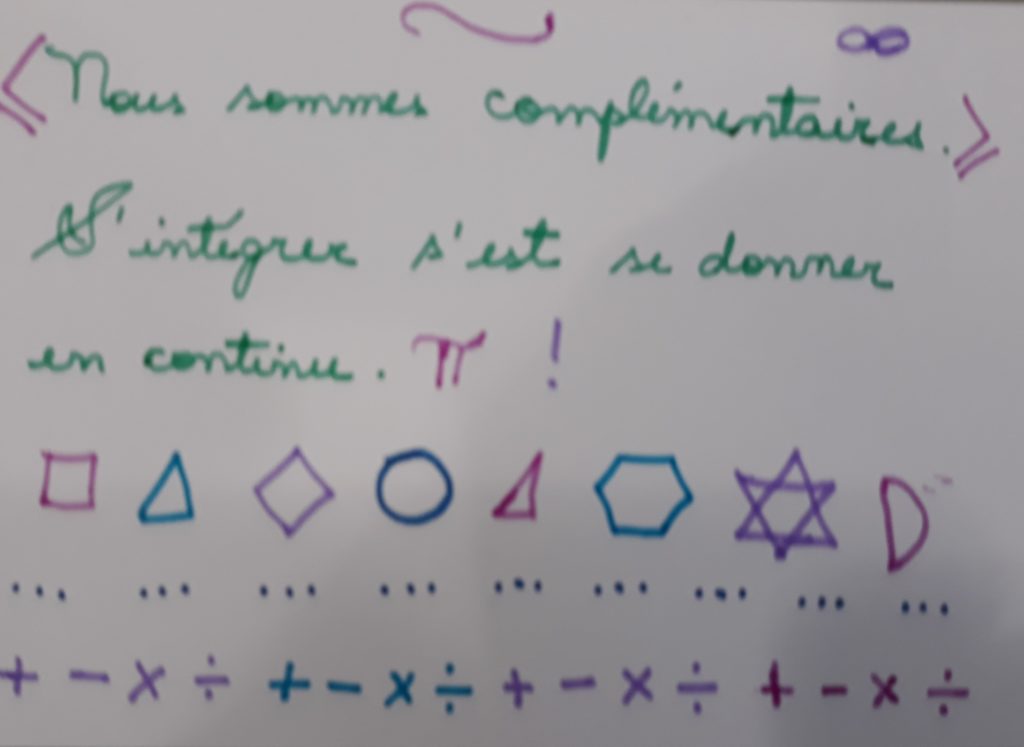 ∞
« Nous sommes complémentaires. »
S'intégrer s'est se donner
en continu. π !
... ... ... ... ... ... ... ... ...
+ - x ÷ + - x ÷ + - x ÷ + - x ÷